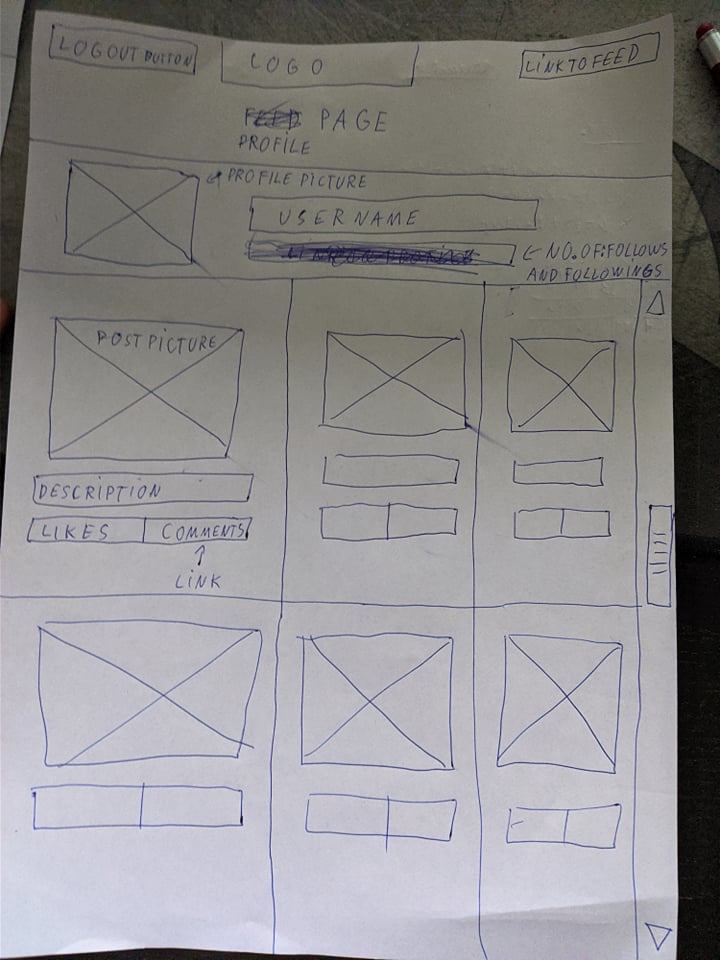 LOGOUT BUTTON
LOGO
LINK TO FEED
PAGE
PROFILE
PROFILE PICTURE
USERNAME
NO. OF FOLLOWS
AND FOLLOWINGS
POST PICTURE
DESCRIPTION
LIKES
COMMENTS
LINK